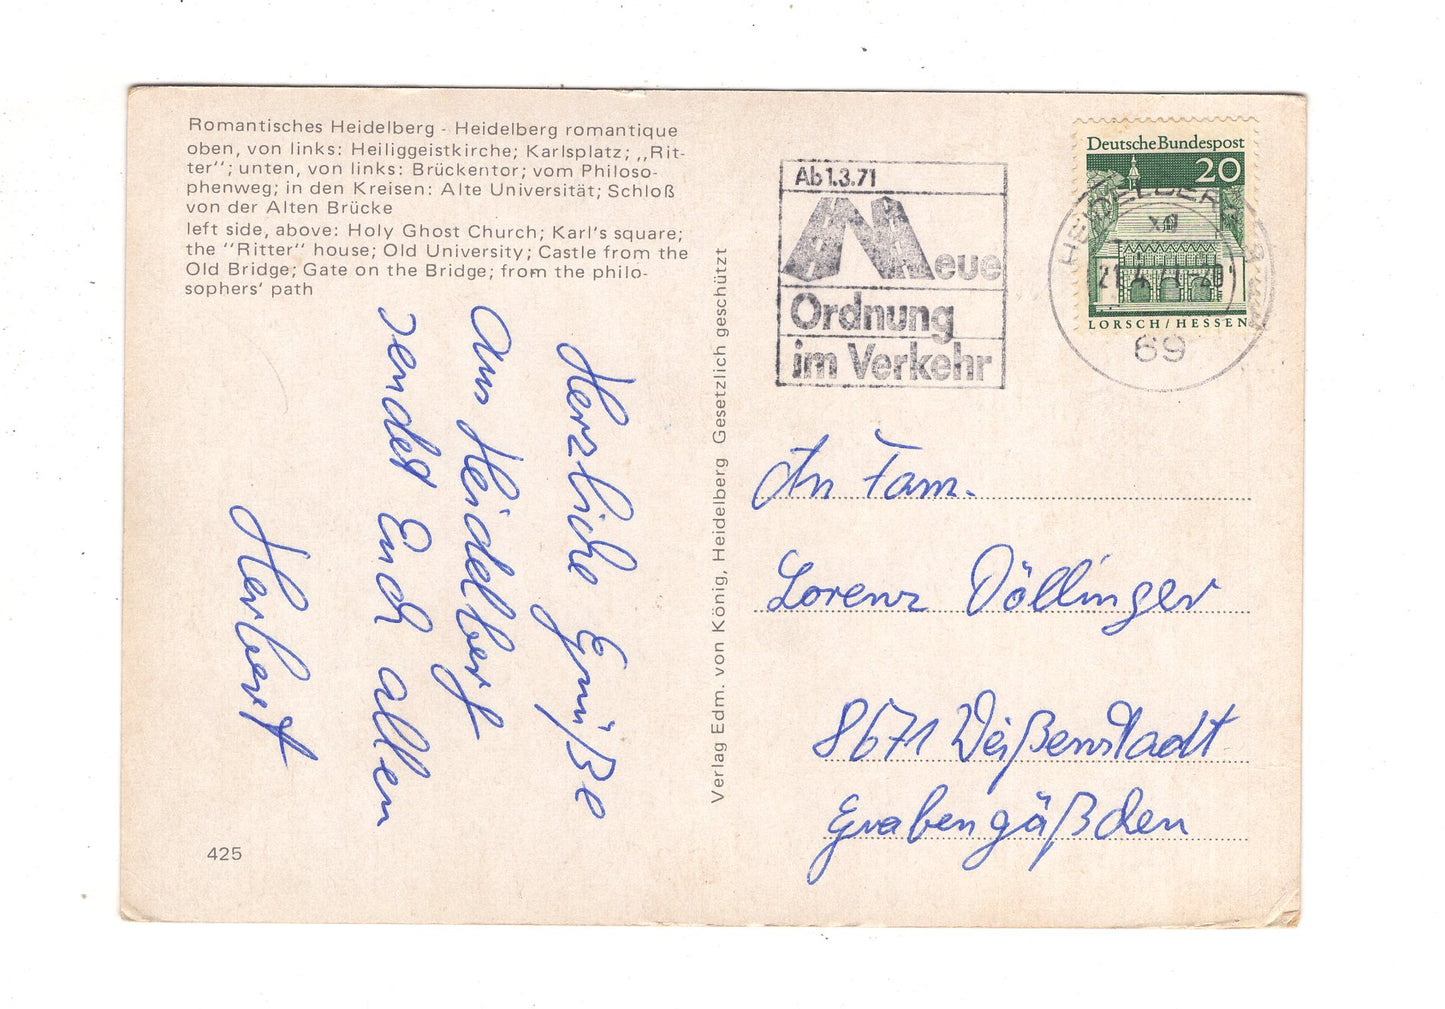 Romantisches Heidelberg - Heidelberg romantique
oben, von links: Heiliggeistkirche; Karlsplatz; „Rit-
ter"; unten, von links: Brückentor; vom Philoso-
phenweg; in den Kreisen: Alte Universität; Schloß
von der Alten Brücke
left side, above: Holy Ghost Church; Karl's square;
the "Ritter" house; Old University; Castle from the
Old Bridge; Gate on the Bridge; from the philo-
sophers' path
Herzliche Grüße
aus Heidelberg
sendet Euch allen
Herbert
425
Verlag Edm. von König, Heidelberg Gesetzlich geschützt
Ab 1.3.71
Neue
Ordnung
im Verkehr
Deutsche Bundespost
20
LORSCH/HESSEN
HEIDELBERG
69
An Fam.
Lorenz Döllinger
8671 Weißenstadt
Grabengäßchen